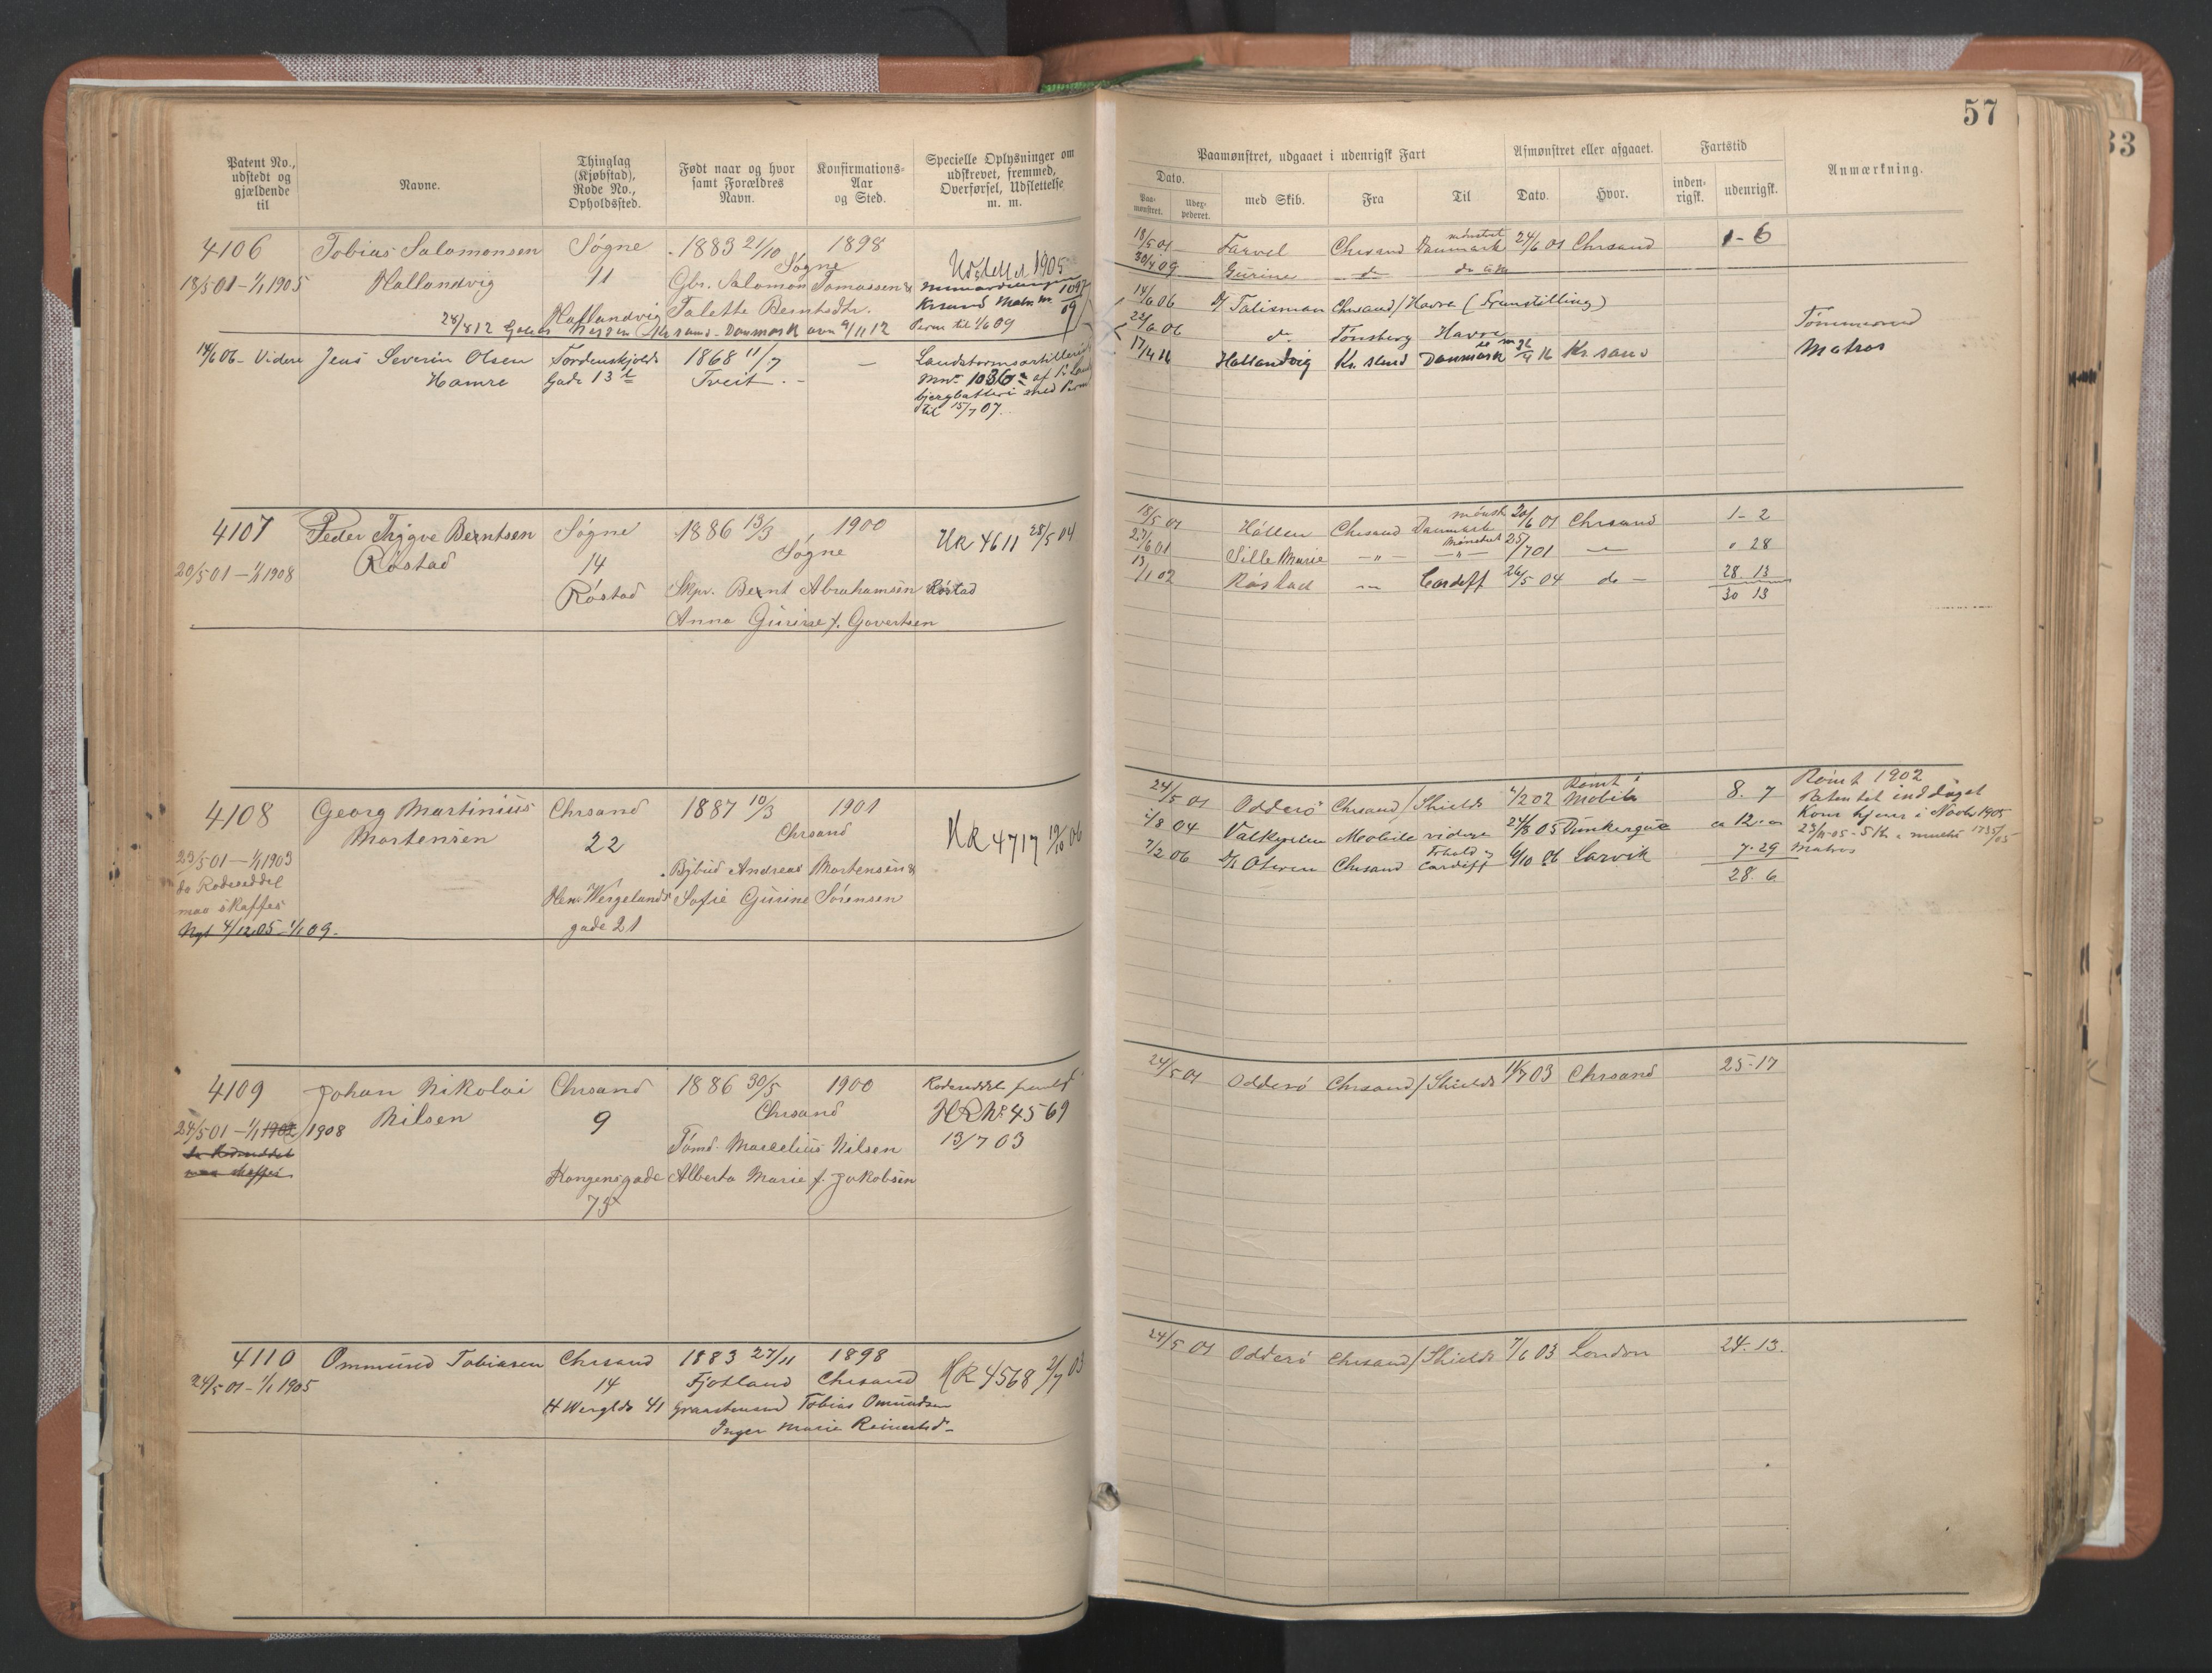 57
33
Patent No., udstedt og gjældende til
Navne.
Thinglag (Kjøbstad), Rode No., Opholdssted.
Født naar og hvor samt Forældres Navn.
Konfirmations-Aar og Sted.
Specielle Oplysninger om udskrevet, fremmed, Overførsel, Udslettelse m. m.
Paamønstret, udgaaet i udenrigsk Fart
Afmønstret eller afgaaet.
Fartstid
Anmærkning.
Dato.
Paa-mønstret.
Udex-pederet.
med Skib.
Fra
Til
Dato.
Hvor.
inden-rigsk.
udenrigsk.
4106 Tobias Salomonsen Søgne 1883 21/10 1898
18/5 01 - 1/1 1905 Hallandvig 11 Søgne Udslettet 1905
Gbr. Salomon Tomassen &
Hallandvig Talette Berntsdtr.
28/8 12 Kr sand - Danmark 9/11 12 Perm til 1/6 09
14/6 06 - Videre Jens Severin Olsen Tordenskjolds 1868 11/7 — Landstormsartilleri
Hamre Gade 13 Tveit. - Mnr 1036 af
bjergbatteri med Perm
til 15/7 07.
18/5 01 Farvel Chrsand Danmark mønstret 24/6 01 Chrsand 1 - 6
30/4 09 Gurine do do
14/6 06 D/ Talisman Chrsand / Havre (Franstilling)
22/6 06 do Tønsberg Havre Tømmermand
17/4 16 Hallandvig Kr. sand Danmark 16 Kr. sand Matros
4107 Peder Trygve Berntsen Søgne 1886 13/3 1900 HR 4611 28/5 04
20/5 01 - 1/1 1908 Røstad 14 Søgne
Røstad Skpr. Bernt Abrahamsen Røstad
Anna Gurine f. Govertsen
18/5 01 Hållen Chrsand Danmark mønst. 20/6 01 Chrsand 1 - 2
27/6 01 Sille Marie — " — — " — Mønstret 25/7 01 — " 28
13/1 02 Røstad — Cardiff 26/5 04 do — 28. 13
30 13
4108 Georg Martinius Chrsand 1887 10/3 1901 HR 4717 19/10 06
Mortensen 22 Chrsand
23/5 01 - 1/1 1903 Bybud Andreas Mortensen &
da Rodeseddel
maa skaffes Hen. Wergelands Sofie Gurine Sørensen
Nyt 4/12 05 - 1/1 09. gade 21
24/5 01 Odderø Chrsand / Shields 2 02 Rømt i Mobile 8. 7 Rømt 1902
Patentet inddraget
4/8 04 Valkyrien Mobile videre 24/8 05 Dunkerque ca 12 Kom hjem i Novbr 1905
7/2 06 D/ Oteren Chrsand Cardiff 6/10 06 Larvik 7 - 29 Matros
28. 6
4109 Johan Nikolai Chrsand 1886 30/5 1900 Rodeseddel
Nilsen 9 Chrsand HR No 4569
24/5 01 - 1/1 1902 / 1908 13/7 03
Tømd. Marcelius Nilsen
Kongensgade Alberta Marie f. Jakobsen
75
24/5 01 Odderø Chrsand / Shields 11/7 03 Chrsand 25 - 17
4110 Ommund Tobiasen Chrsand 1883 27/11 1898 HR 4568 2/7 03
24/5 01 - 1/1 1905 14 Fjotland Chrsand
H Werglds 41 Tobias Omundsen
Inger Marie Reinertsd -
24/5 01 Odderø Chrsand / Shields 7/6 03 London 24 - 13.